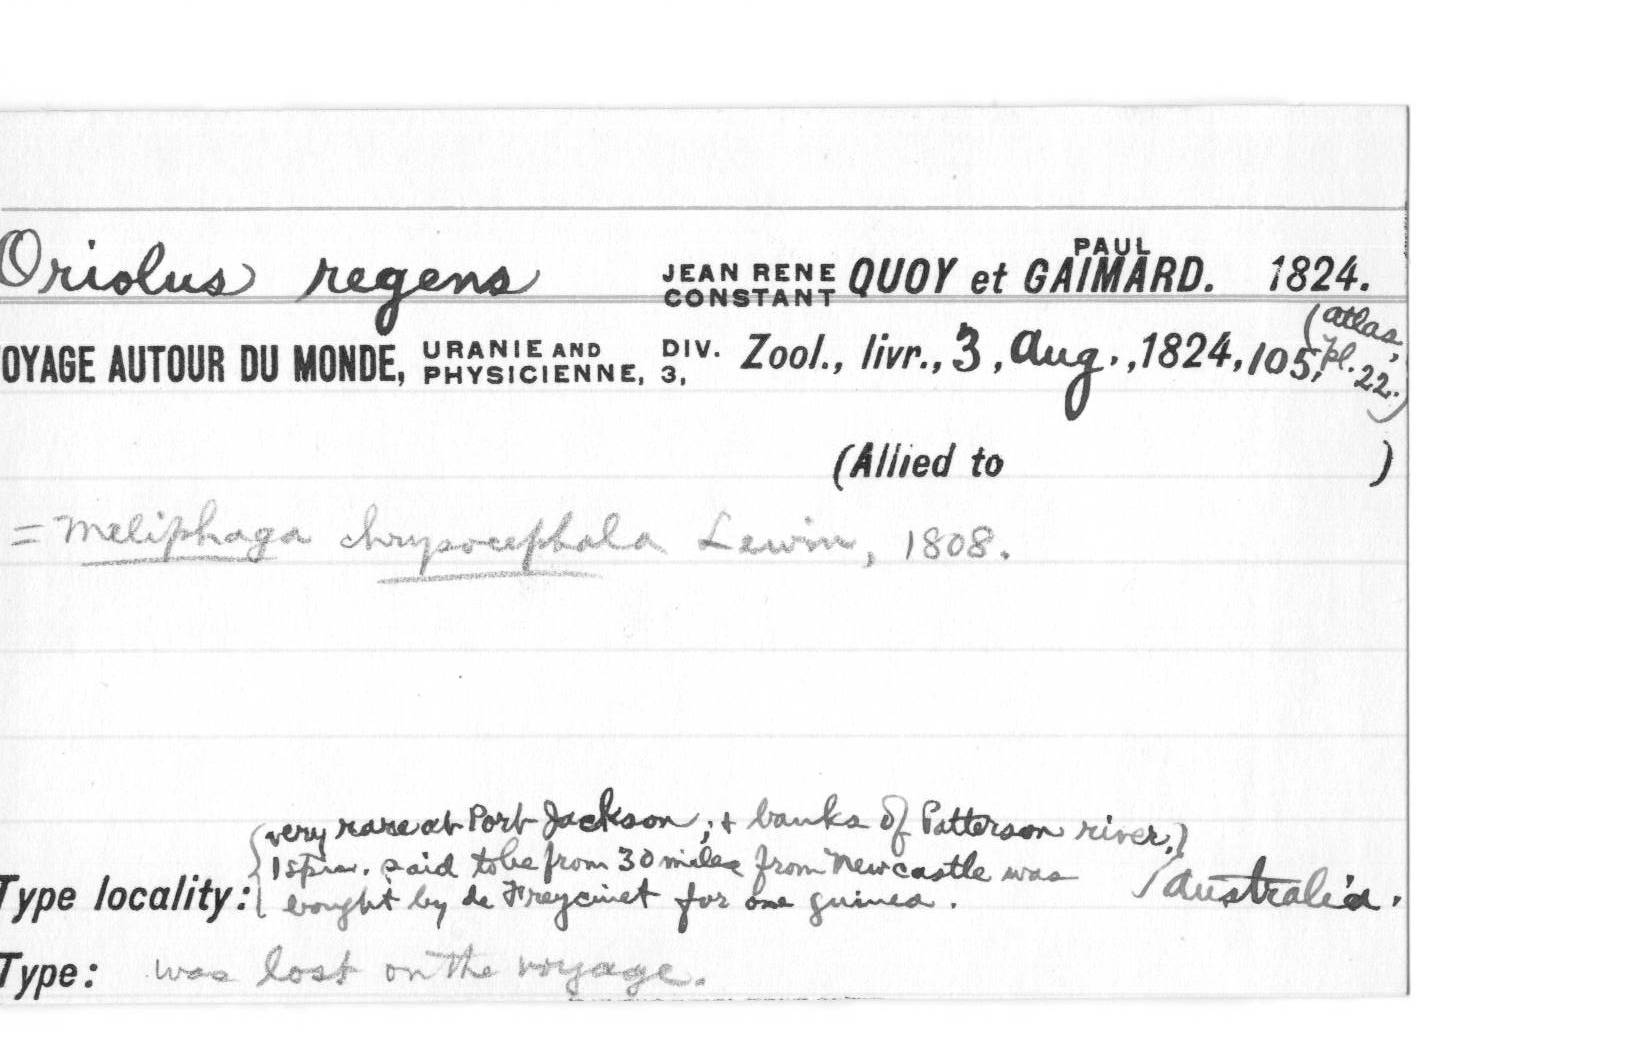 Oriolus regens JEAN RENE CONSTANT QUOY et PAUL GAIMARD. 1824.
OYAGE AUTOUR DU MONDE, URANIE AND PHYSICIENNE, DIV. 3, Zool., livr., 3, Aug., 1824, 105, (atlas, pl. 22.)
(Allied to )
= Meliphaga chrysocephala Lewin, 1808.
very rare at Port Jackson, & banks of Patterson river,
1 spm. said to be from 30 miles from Newcastle was
Type locality: bought by de Freycinet for one guinea. / Australia.
Type: was lost on the voyage.